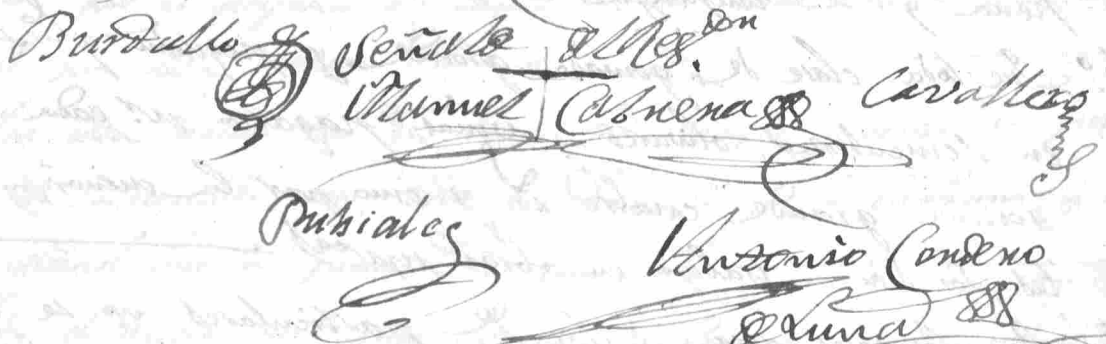 Burdallo
Señal + de el Reg.don
Manuel Cabrera
Cavallero
Rubiales
Antonio Cordero
de Luna